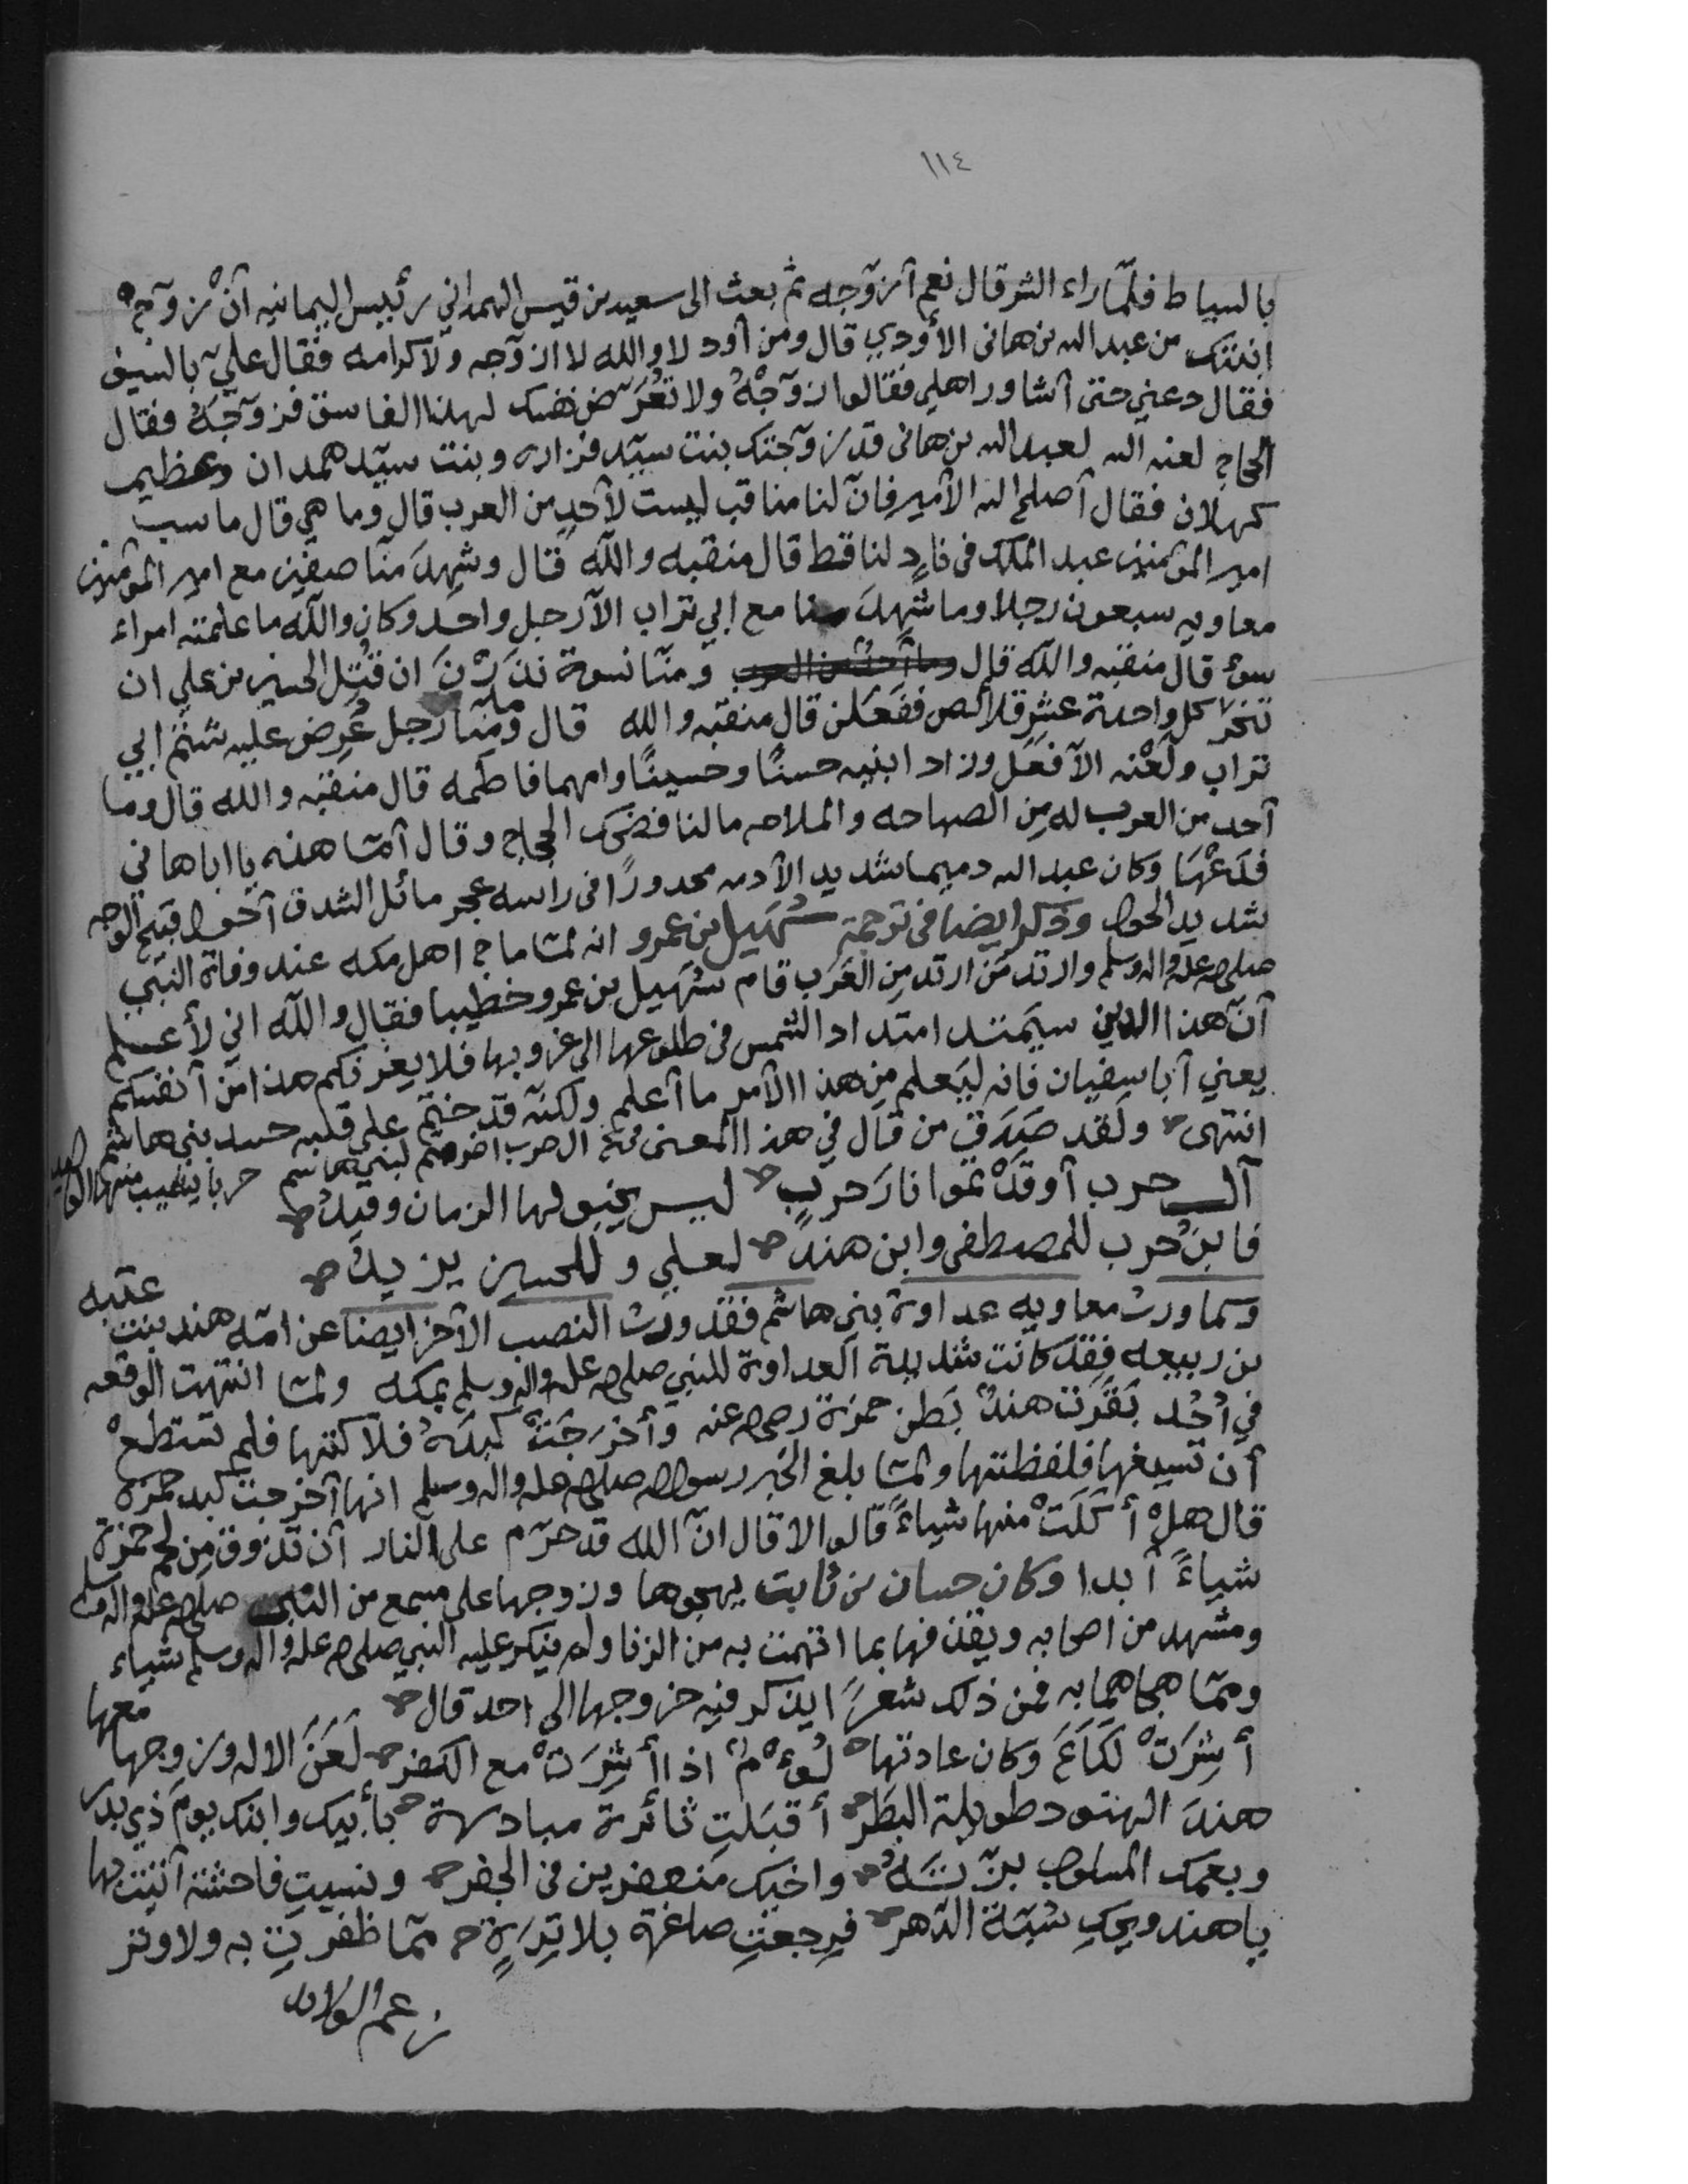 ١١٤
بالسياط فلمّا راء الشر قال نعم أزوّجه ثم بعث الى سعيد بن قيس الهمداني رئيس اليمانيه أنْ زوّج
ابنتك من عبد الله بن هانى الأودي قال ومن أود لا والله لا ازوّجه ولا كرامه فقال عليّ بالسيف
فقال دعني حتى أشاور اهلي فقالوا زوّجْهُ ولا تُعرّض نفسك لهذا الفاسق فزوّجَهُ فقال
الحجاج لعنه الله لعبد الله بن هانى قد زوّجتك بنت سيّد فزاره وبنت سيّد همدان وعظيم
كهلان فقال أصلح الله الأمير فانّ لنا مناقب ليست لأحدٍ من العرب قال وما هي قال ما سب
امير المؤمنين عبد الملك في نادٍ لنا قط قال منقبه والله قال وشهِدَ منّا صفين مع امير المؤمنين
معاويه سبعون رجلا وما شهِدَ منا مع ابي تراب الاّ رجل واحد وكان والله ما علمته امراء
سوء قال منقبه والله قال ومنّا نسوة نَذَرْنَ ان قُتِل الحسين بن علي ان
تنحر كل واحدة عشر قلائص ففعَلن قال منقبه والله قال ومنّا رجل عُرِض عليه شتْم ابي
تراب ولَعْنه الاّ فعَل وزاد ابنيه حسنًا وحسينًا وامهما فاطمه قال منقبه والله قال وما
أحد من العرب له مِن الصباحه والملاحه ما لنا فضحك الحجاج وقال أمّا هذه يا ابا هاني
فدَعْها وكان عبد الله دميما شديد الأدمه مجدورًا في راسه عجر مائل الشدق أحول قبيح الوجه
شديد الحول وذكر ايضا في ترجمة سُهَيل بن عمرو انه لمّا ماج اهل مكه عند وفاة النبي
صلى الله عليه واله وسلم وارتد مَن ارتد مِن العَرب قام سُهَيل بن عمرو خطيبا فقال والله اني لأعلم
أنّ هذا الدين سيَمتد امتداد الشمس في طلوعها الى غروبها فلا يغرنّكم هذا مِن أنفسكم
يعني أبا سفيان فانه ليَعلم مِن هذا الأمر ما أعلم ولكنّه قد ختَم على قلبه حسد بني هاشم
انتهى ولقد صَدَق من قال في هذا المعنى ال حرب اضرمتم لبني هاشم حربا يشيب منها الوليد
آل حرب أوقدْتموا نارَ حربٍ ليس يخبو لها الزمان وقيدُ
فابنُ حرب للمصطفى وابن هندٍ لعلي وللحسين يزيدُ
وكما ورث معاويه عداوة بني هاشم فقد ورث النصب الآخر ايضا عن امّه هند بنت عتبه
بن ربيعه فقد كانت شديدة العداوة للنبي صلى الله عليه واله وسلم بمكه ولمّا انتهت الوقعه
في أُحُد بَقَرَت هندٌ بَطن حمزة رضي الله عنه وأخرَجَتْ كبدَهُ فلاكتها فلم تستطعْ
أن تسيغها فلفظتها ولمّا بلغ الخبر رسول الله صلى الله عليه واله وسلم انها أخرجت كبد حمزة
قال هلْ أكَلَتْ منها شياءً قالوا لا قال انّ الله قد حرّم على النار أن تذوق مِن لحم حمزة
شياءً أبدا وكان حسان بن ثابت يهجوها وزوجها على مسمع من النبي صلى الله عليه واله وسلم
ومشهد من اصحابه ويقذفها بما اتهمت به من الزنا ولم ينكر عليه النبي صلى الله عليه واله وسلم شياء
وممّا هجاهما به فمن ذلك شعرً ايذكر فيه خروجها الى احد قال
أشِرَتْ لَكَاعَ وكان عادتها لُؤْمٌ اذا أشِرَتْ مع الكفر لَعَنَ الاله وزوجها معها
هندَ الهنود طويلة البَظَر أقبَلتِ ثائرة مبادرة بأبيك وابنك يومَ ذي بدر
وبعمك المسلوب بزّتَهُ واخيك منعفرين في الجفر ونسيتِ فاحشة أتيت بها
ياهند ويحكِ سُبّةَ الدّهر فرجعتِ صاغرة بلا تِرَةٍ ممّا ظفرتِ به ولا وتر
زعم الولائد